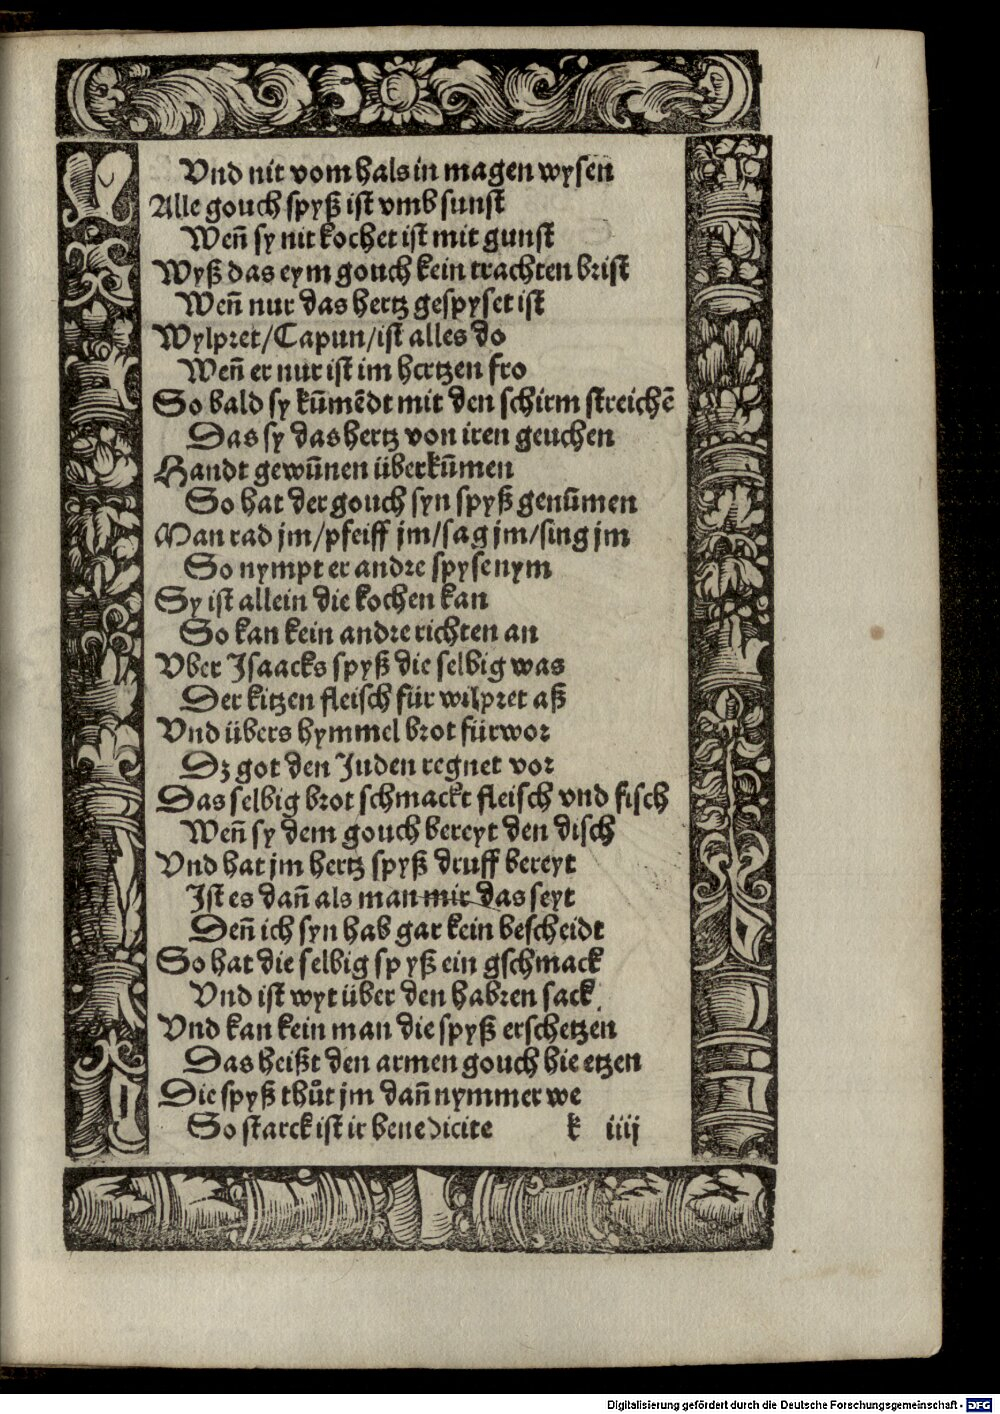 Vnd nit vom hals in magen wysen
Alle gouch spyß ist vmb sunst
Weñ sy nit kochet ist mit gunst
Wyß das eym gouch kein trachten brist
Weñ nur das hertz gespyset ist
Wylpret/Capun/ist alles do
Weñ er nur ist im hertzen fro
So bald sy kūmēdt mit den schirm streichē
Das sy das hertz von iren geuchen
Handt gewūnen überkūmen
So hat der gouch syn spyß genūmen
Man rad jm/pfeiff jm/sag jm/sing jm
So nympt er andre spyse nym
Sy ist allein die kochen kan
So kan kein andre richten an
Vber Isaacks spyß die selbig was
Der kitzen fleisch für wilpret aß
Vnd übers hymmel brot fürwor
Dz got den Juden regnet vor
Das selbig brot schmackt fleisch vnd fisch
Weñ sy dem gouch bereyt den disch
Vnd hat jm hertz spyß druff bereyt
Ist es dañ als man mir das seyt
Deñ ich syn hab gar kein bescheidt
So hat die selbig spyß ein gschmack
Vnd ist wyt über den habren sack
Vnd kan kein man die spyß erschetzen
Das heißt den armen gouch hie etzen
Die spyß thůt jm dañ nymmer we
So starck ist ir benedicite k iiij
Digitalisierung gefördert durch die Deutsche Forschungsgemeinschaft - DFG